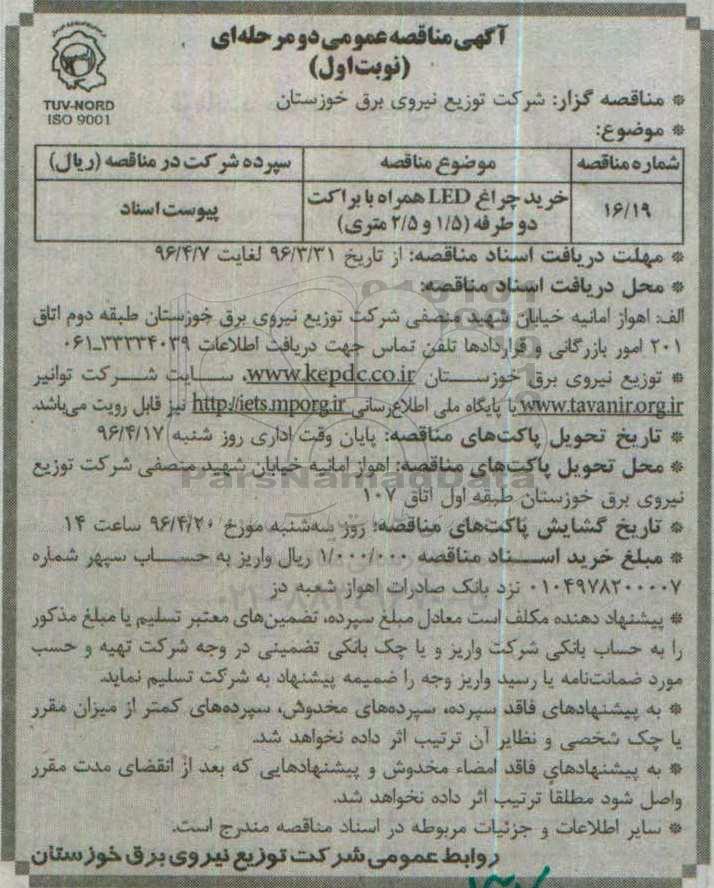 آگهی مناقصه عمومی دو مرحله‌ای
(نوبت اول)
TUV-NORD
ISO 9001
* مناقصه گزار: شرکت توزیع نیروی برق خوزستان
* موضوع:
شماره مناقصه | موضوع مناقصه | سپرده شرکت در مناقصه (ریال)
۱۶/۱۹ | خرید چراغ LED همراه با براکت دو طرفه (۱/۵ و ۲/۵ متری) | پیوست اسناد
* مهلت دریافت اسناد مناقصه: از تاریخ ۹۶/۳/۳۱ لغایت ۹۶/۴/۷
* محل دریافت اسناد مناقصه:
الف: اهواز امانیه خیابان شهید منصفی شرکت توزیع نیروی برق خوزستان طبقه دوم اتاق
۲۰۱ امور بازرگانی و قراردادها تلفن تماس جهت دریافت اطلاعات ۳۳۳۳۴۰۳۹-۰۶۱
* توزیع نیروی برق خوزستان www.kepdc.co.ir، سایت شرکت توانیر
www.tavanir.org.ir یا پایگاه ملی اطلاع‌رسانی http://iets.mporg.ir نیز قابل رویت می‌باشد.
* تاریخ تحویل پاکت‌های مناقصه: پایان وقت اداری روز شنبه ۹۶/۴/۱۷
* محل تحویل پاکت‌های مناقصه: اهواز امانیه خیابان شهید منصفی شرکت توزیع
نیروی برق خوزستان طبقه اول اتاق ۱۰۷
* تاریخ گشایش پاکت‌های مناقصه: روز سه‌شنبه مورخ ۹۶/۴/۲۰ ساعت ۱۴
* مبلغ خرید اسناد مناقصه ۱/۰۰۰/۰۰۰ ریال واریز به حساب سپهر شماره
۰۱۰۴۹۷۸۲۰۰۰۰۷ نزد بانک صادرات اهواز شعبه دز
* پیشنهاد دهنده مکلف است معادل مبلغ سپرده، تضمین‌های معتبر تسلیم یا مبلغ مذکور
را به حساب بانکی شرکت واریز و یا چک بانکی تضمینی در وجه شرکت تهیه و حسب
مورد ضمانت‌نامه یا رسید واریز وجه را ضمیمه پیشنهاد به شرکت تسلیم نماید.
* به پیشنهادهای فاقد سپرده، سپرده‌های مخدوش، سپرده‌های کمتر از میزان مقرر
یا چک شخصی و نظایر آن ترتیب اثر داده نخواهد شد.
* به پیشنهادهای فاقد امضاء مخدوش و پیشنهادهایی که بعد از انقضای مدت مقرر
واصل شود مطلقا ترتیب اثر داده نخواهد شد.
* سایر اطلاعات و جزئیات مربوطه در اسناد مناقصه مندرج است.
روابط عمومی شرکت توزیع نیروی برق خوزستان
ParsNamadData